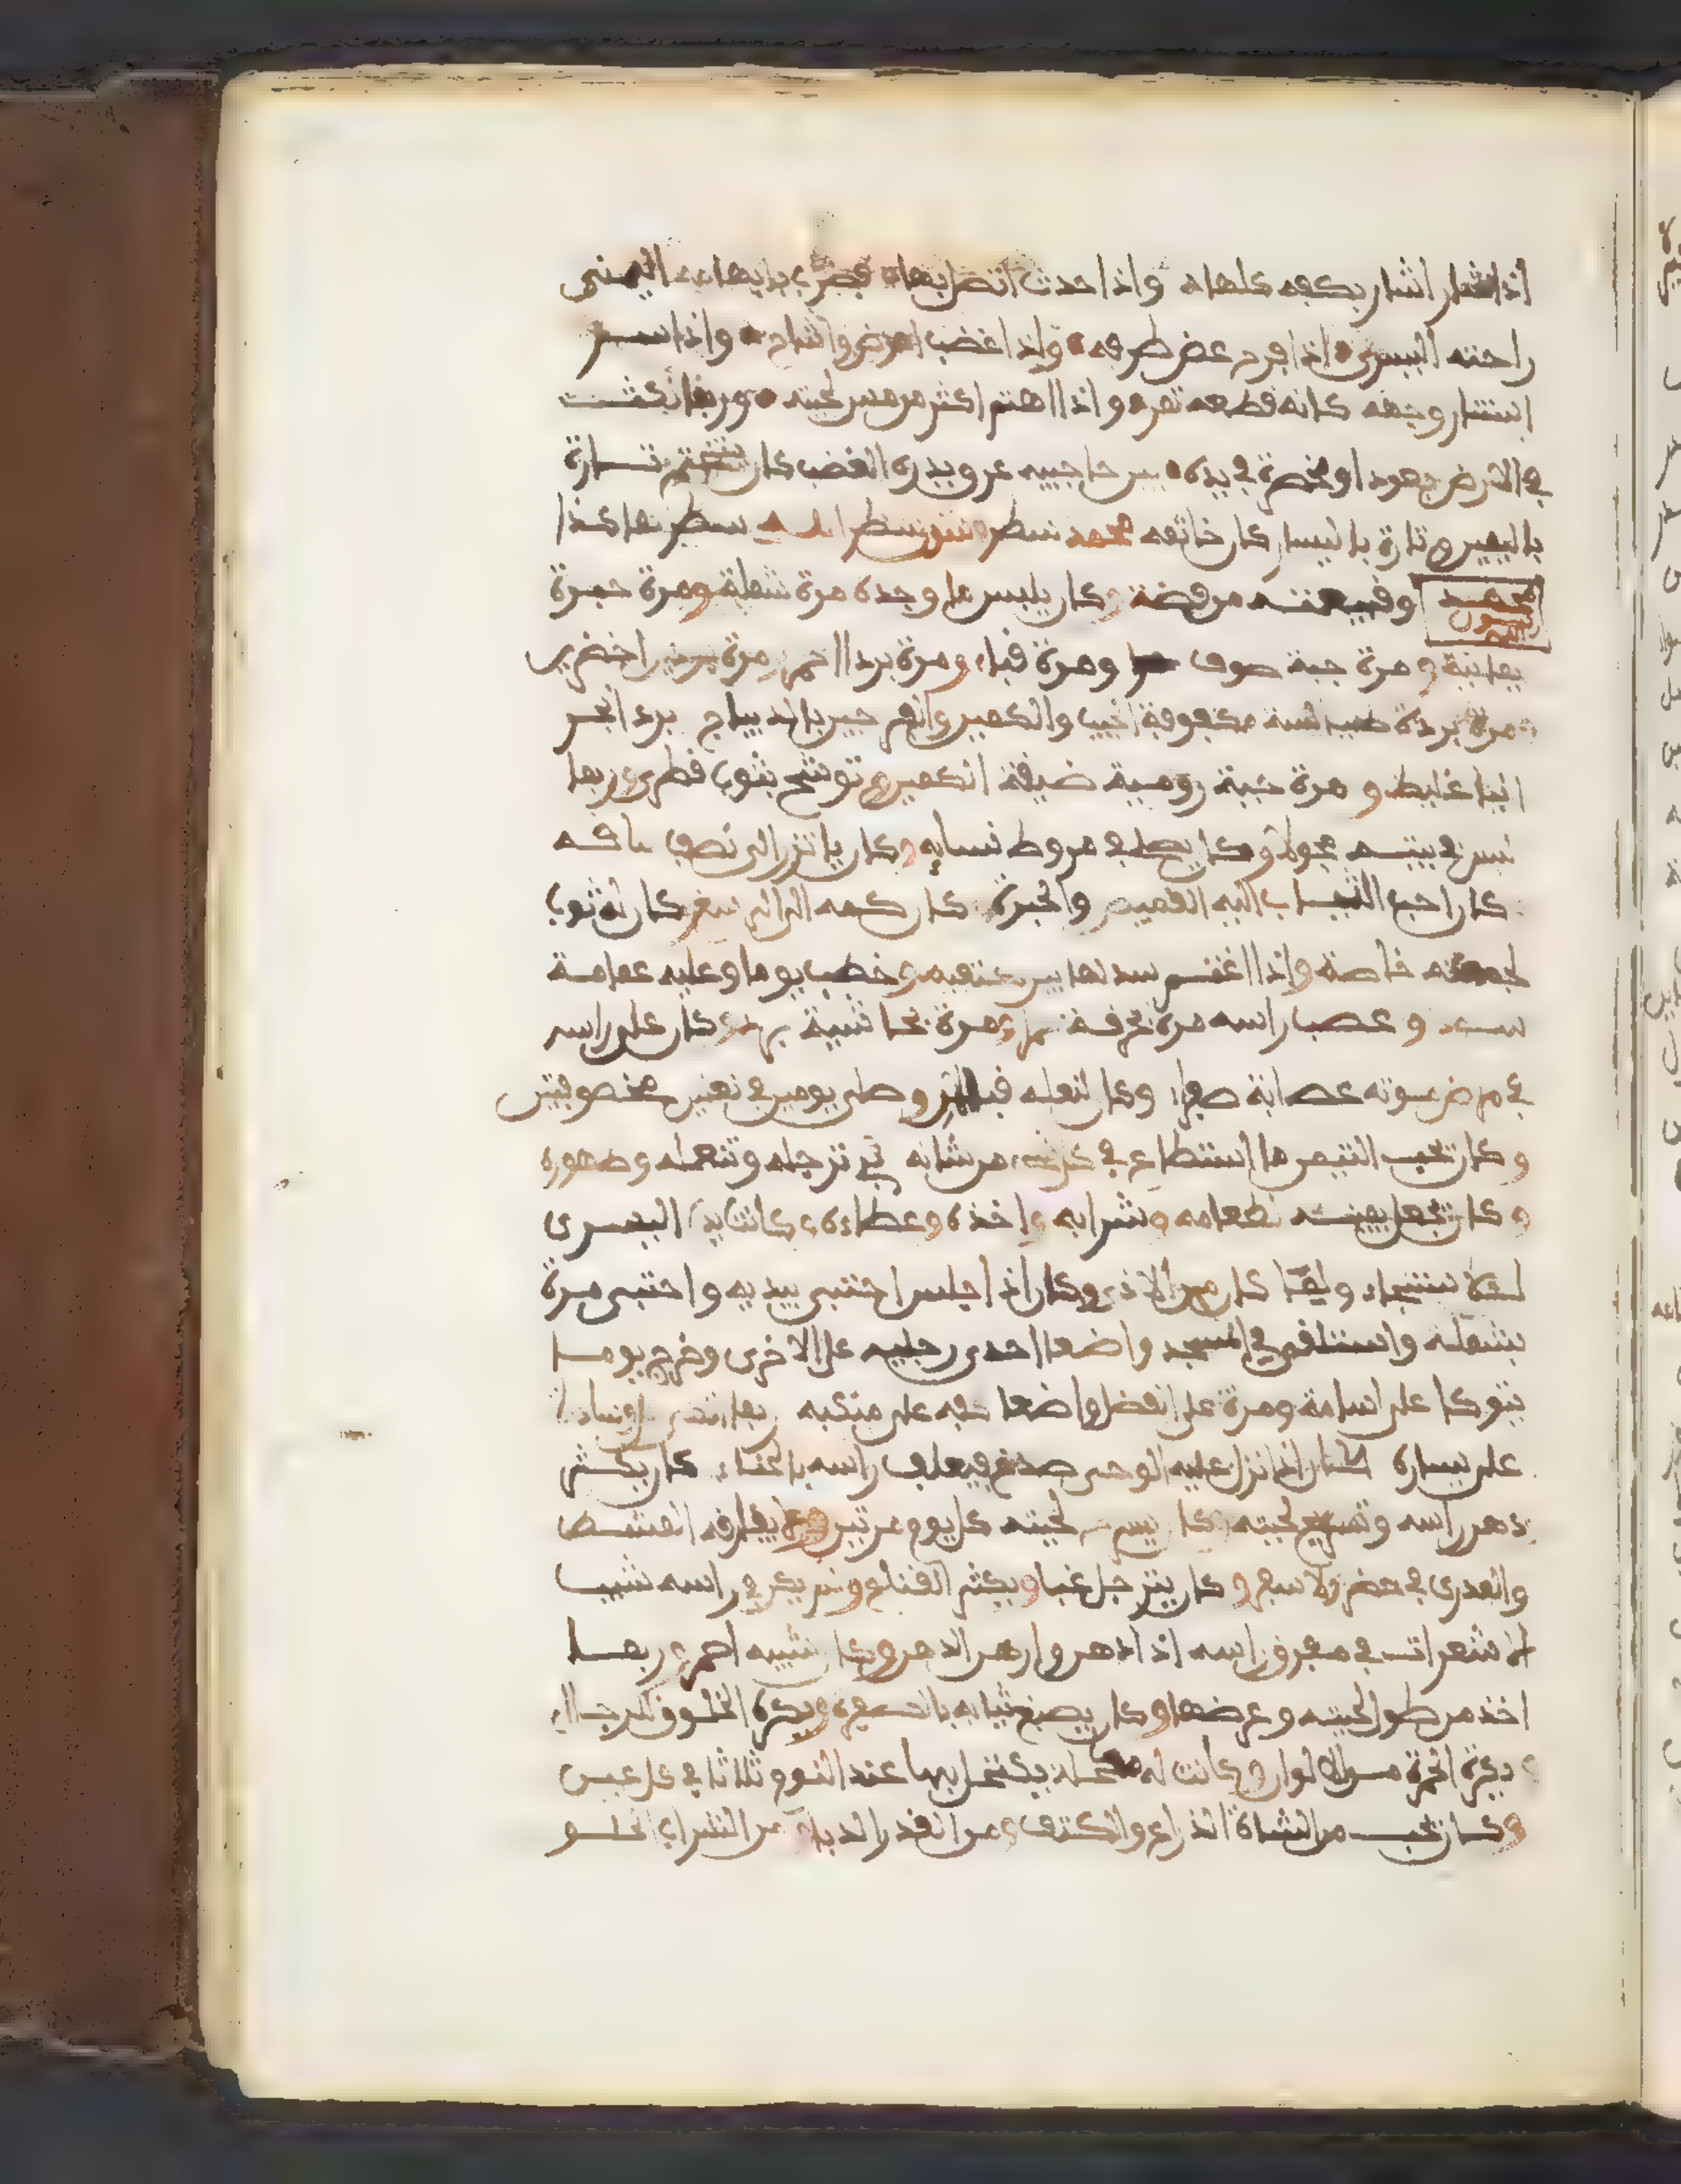 اذا اشار اشار بكفه كلها واذا حدث اتصل بها فضرب بابهامه اليمنى
راحته اليسرى اذا فرح غض طرفه واذا غضب اعرض واشاح واذا سر
استنار وجهه كانه قطعة قمر واذا اهتم اكثر من مس لحيته وربما نكث
في الارض بعود او مخصرة في يده بين حاجبيه عرق يدره الغضب كان يتختم تارة
باليمين و تارة باليسار كان خاتمه محمد سطر رسول سطر الله سطر هاكذا
محمد رسول الله وقبيعته من فضة وكان يلبس ما وجده مرة شملة ومرة حبرة
يمانية و مرة جبة صوف ومرة قباء ومرة بردا احمر مرة بردين اخضرين
مرة بردة طيالسة مكفوفة الجيب والكمين والفرجين بالديباج برد انجر
انيا غليظ و مرة جبة رومية ضيقة الكمين و توشح بثوب قطري ربما
نسي في بيته محولا وكان يصلي في مروط نسايه وكان ياتزر الى نصف ساقه
كان احب الثياب اليه القميص والحبرة كان كمه الى الرسغ كان له ثوب
لجمعته خاصة واذا اعتم سدلها بين كتفيه وخطب يوما وعليه عمامة
سوداء و عصب راسه مرة بخرقة ومرة بحاشية برد كان على راسه
في مرض موته عصابة صفراء وكان لنعله قبالان وصلى يوما في نعلين مخصوفتين
وكان يحب التيمن ما استطاع في كل شانه في ترجله وتنعله وطهوره
وكان يجعل يمينه لطعامه وشرابه واخذه وعطاءه كانت يده اليسرى
لاستنجاء ولما كان من الاذى وكان اذا جلس احتبى بيديه واحتبى مرة
بشملة واستلقى في المسجد واضعا احدى رجليه على الاخرى وخرج يوما
يتوكا على اسامة ومرة على الفضل واضعا كفه على منكبه ربما اتكى
على يساره كان اذا نزل عليه الوحى صدع فيغلف راسه بالحناء كان يكثر
دهن راسه وتسريح لحيته كل يوم مرتين ولا يفارقه المشط
والمدرى في حضر ولا سفر وكان يترجل غبا ويكثر القناع ولم يكن في راسه شيب
الا شعرات في مفرق راسه اذا ادهن واراهن الدهن وكان شيبه احمر ربما
اخذ من طول لحيته و عرضها وكان يصبغ ثيابه بالصفرة ويكره الخلوق للرجال
ويكره الحمرة من الالوان وكانت له مكحلة يكتحل بها عند النوم ثلاثا في كل عين
وكان يحب من الشاة الذراع والكتف ومن القدر الدباء من الشراب الحلو